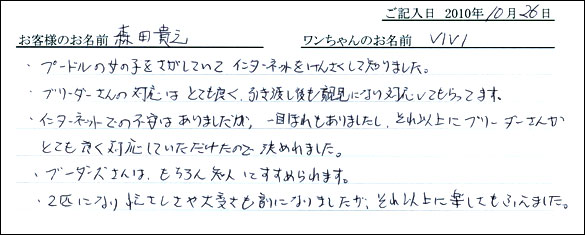 ご記入日 2010年10月26日
お客様のお名前 森田貴之 ワンちゃんのお名前 VIVI
・プードルの女の子をさがしていて インターネットをけんさくして知りました。
・ブリーダーさんの対応は とても良く、引き渡し後も親身になり対応してもらってます。
・インターネットでの不安はありましたが、一目ぼれもありましたし、それ以上にブリーダーさんが
とても良く対応していただけたので 決めれました。
・ブーダーズさんは、もちろん知人にすすめられます。
・2匹になり 忙しさや大変さも倍になりましたが、それ以上に楽してもふえました。